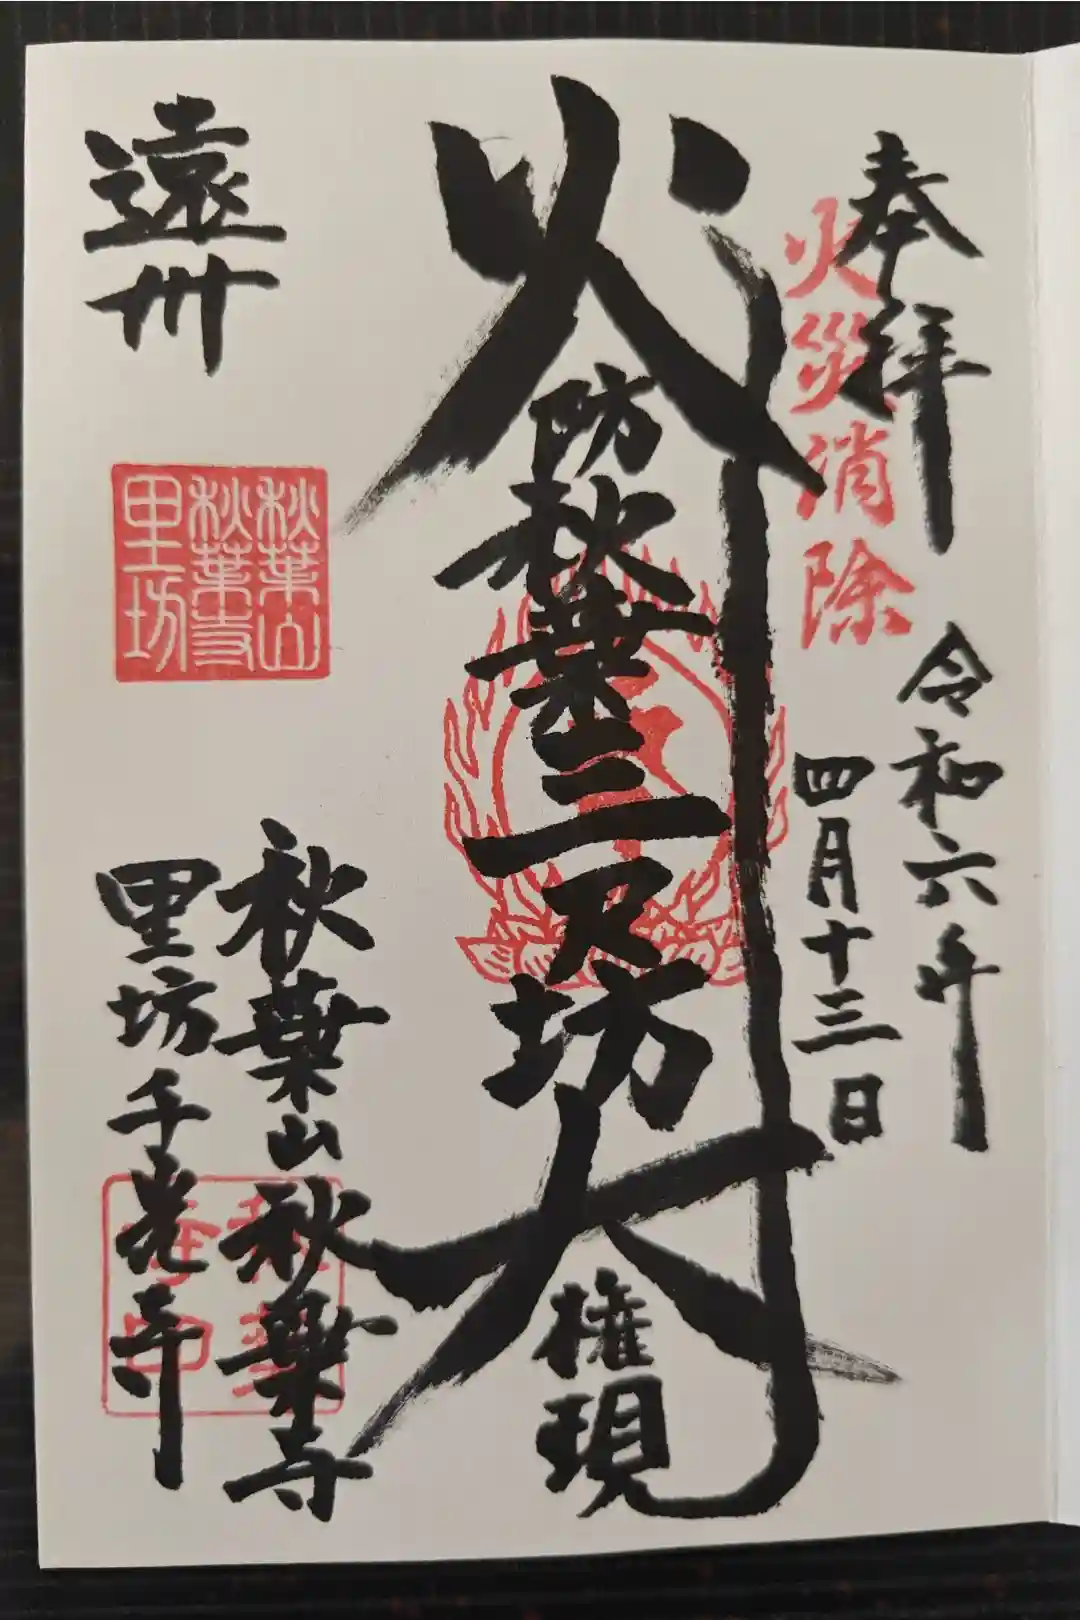 奉拝
火災消除
令和六年
四月十三日
火防秋葉三尺坊大権現
遠州
秋葉山
秋葉寺
里坊
秋葉山秋葉寺
里坊千光寺